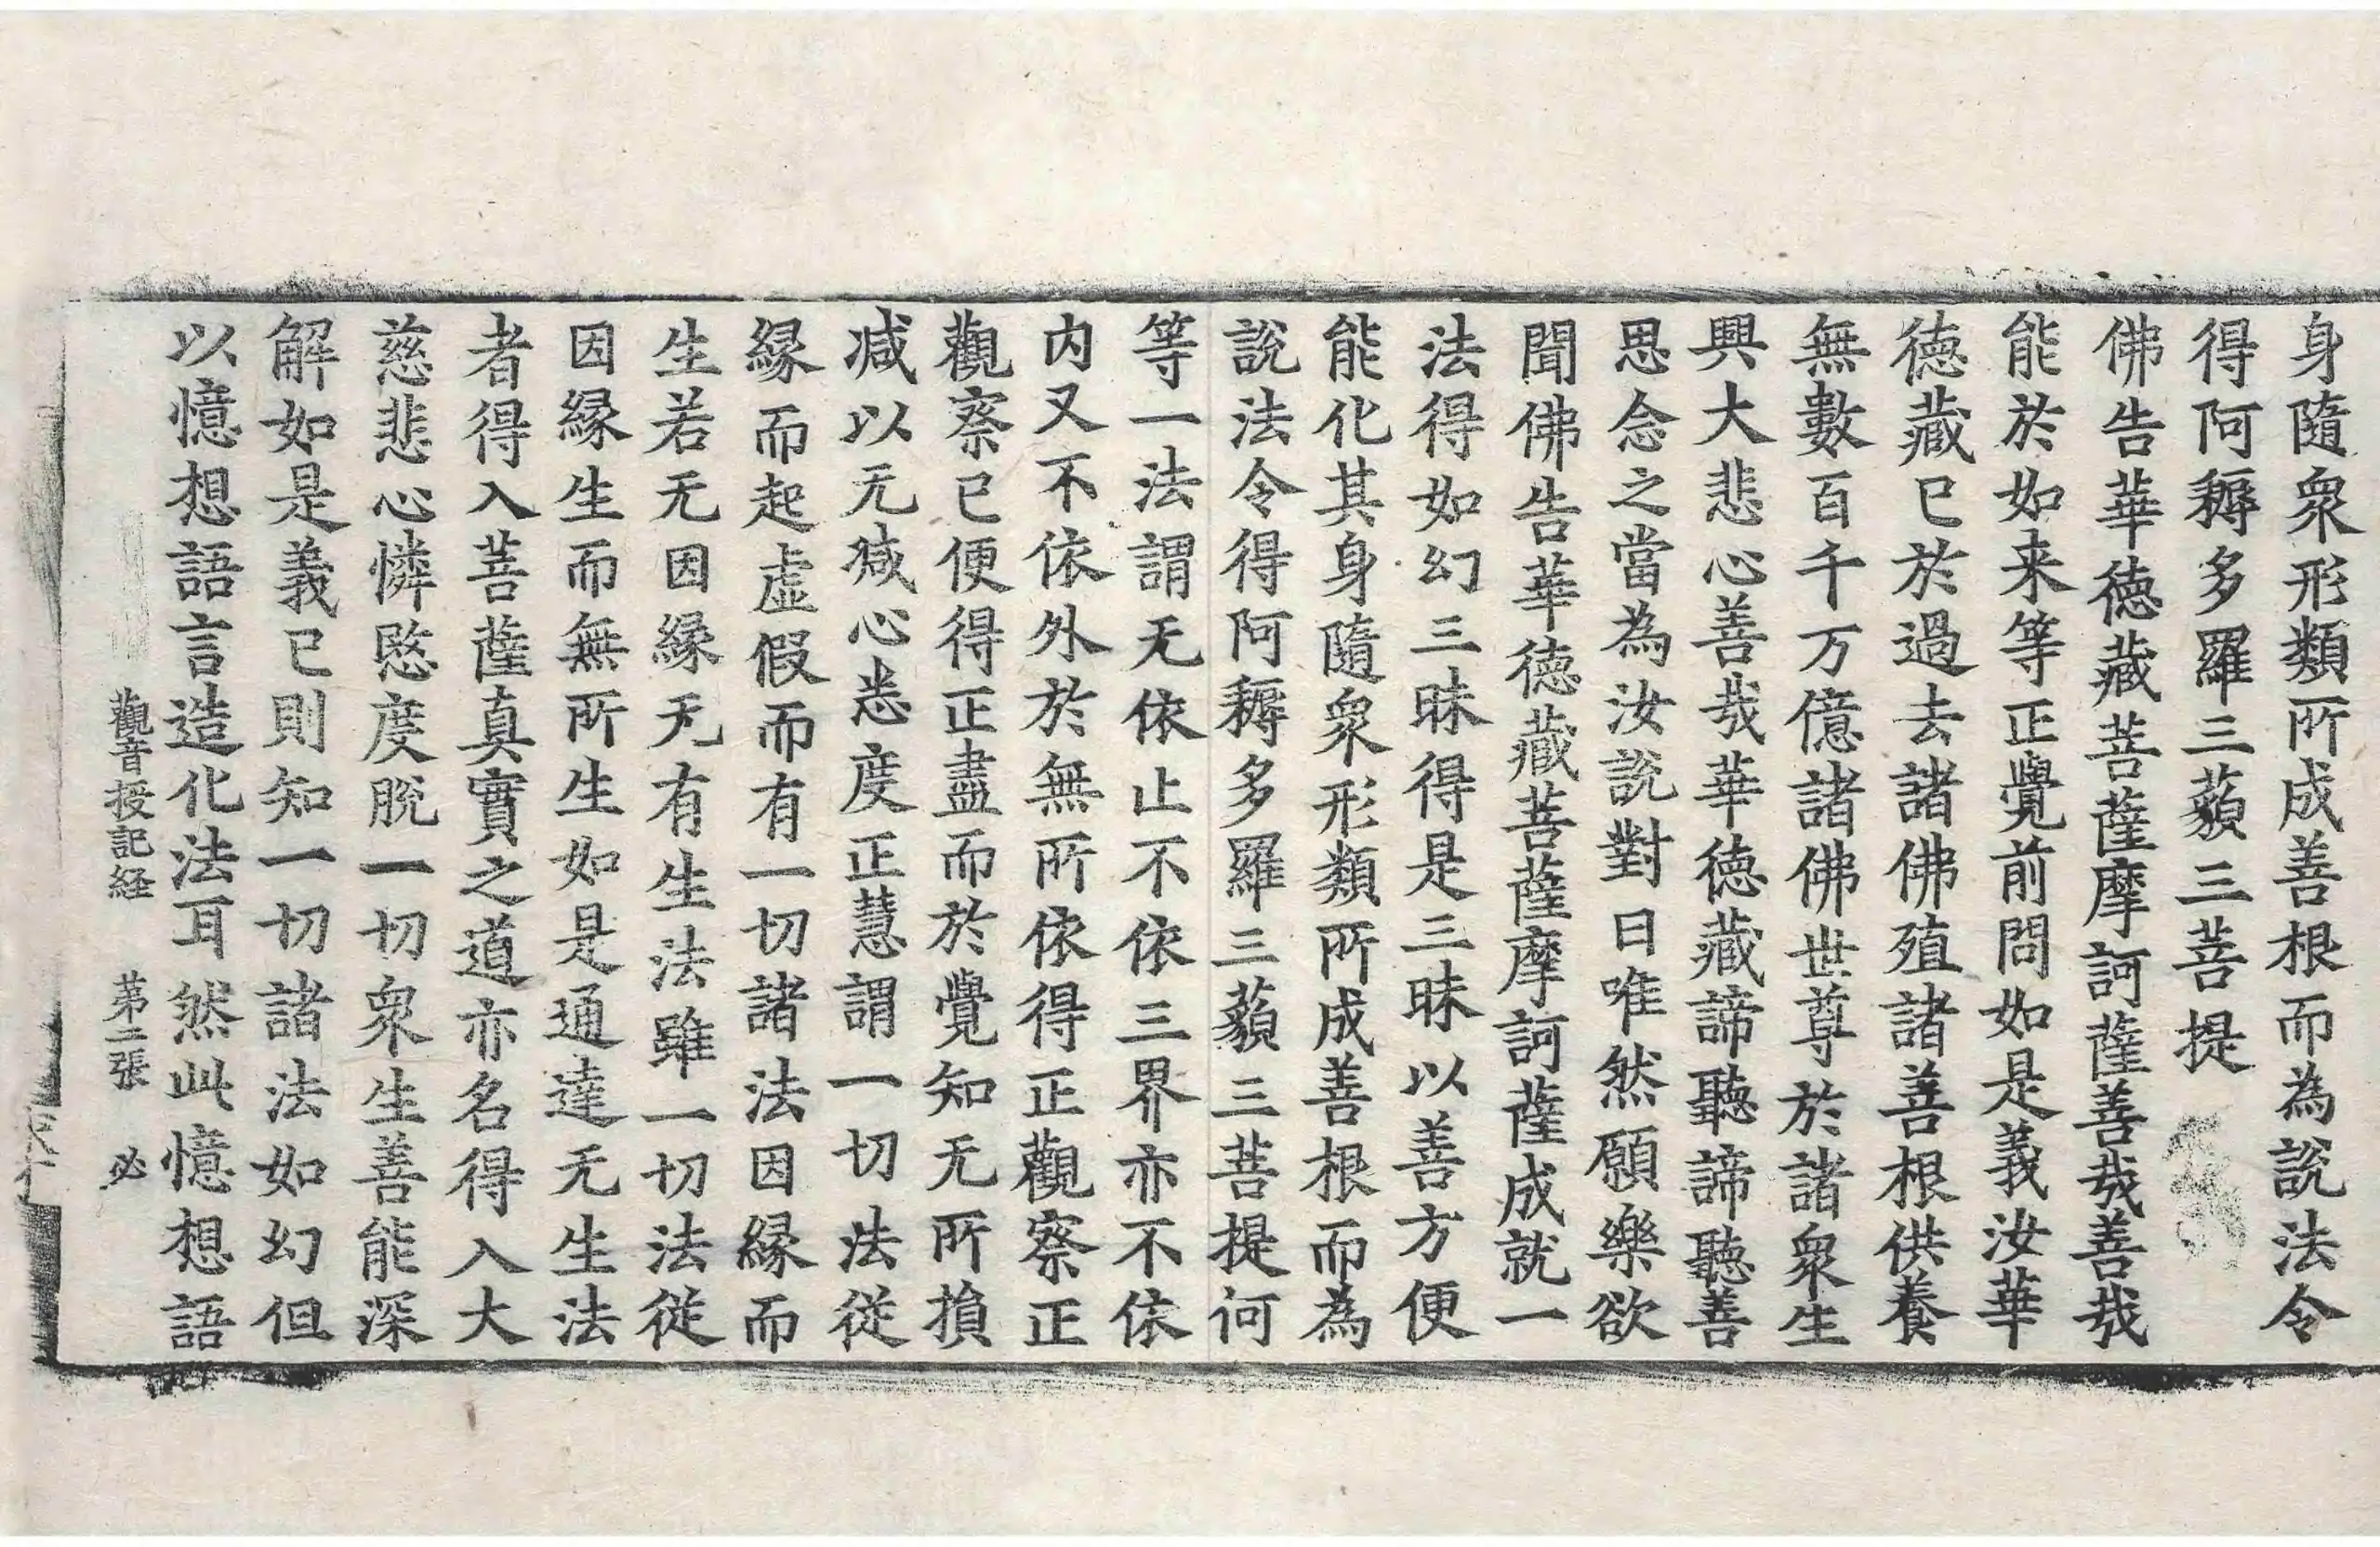 身隨衆形類所成善根而為說法令
得阿耨多羅三藐三菩提
佛告華德藏菩薩摩訶薩善哉善哉
能於如来等正覺前問如是義汝華
德藏已於過去諸佛殖諸善根供養
無數百千万億諸佛世尊於諸衆生
興大悲心善哉華德藏諦聽諦聽善
思念之當為汝說對曰唯然願樂欲
聞佛告華德藏菩薩摩訶薩成就一
法得如幻三昧得是三昧以善方便
能化其身隨衆形類所成善根而為
說法令得阿耨多羅三藐三菩提何
等一法謂无依止不依三界亦不依
内又不依外於無所依得正觀察正
觀察已便得正盡而於覺知无所損
減以无減心悉度正慧謂一切法從
緣而起虛假而有一切諸法因緣而
生若无因緣无有生法雖一切法從
因緣生而無所生如是通達无生法
者得入菩薩真實之道亦名得入大
慈悲心憐愍度脫一切衆生善能深
解如是義已則知一切諸法如幻但
以憶想語言造化法耳然此憶想語
觀音授記経 第二張 必